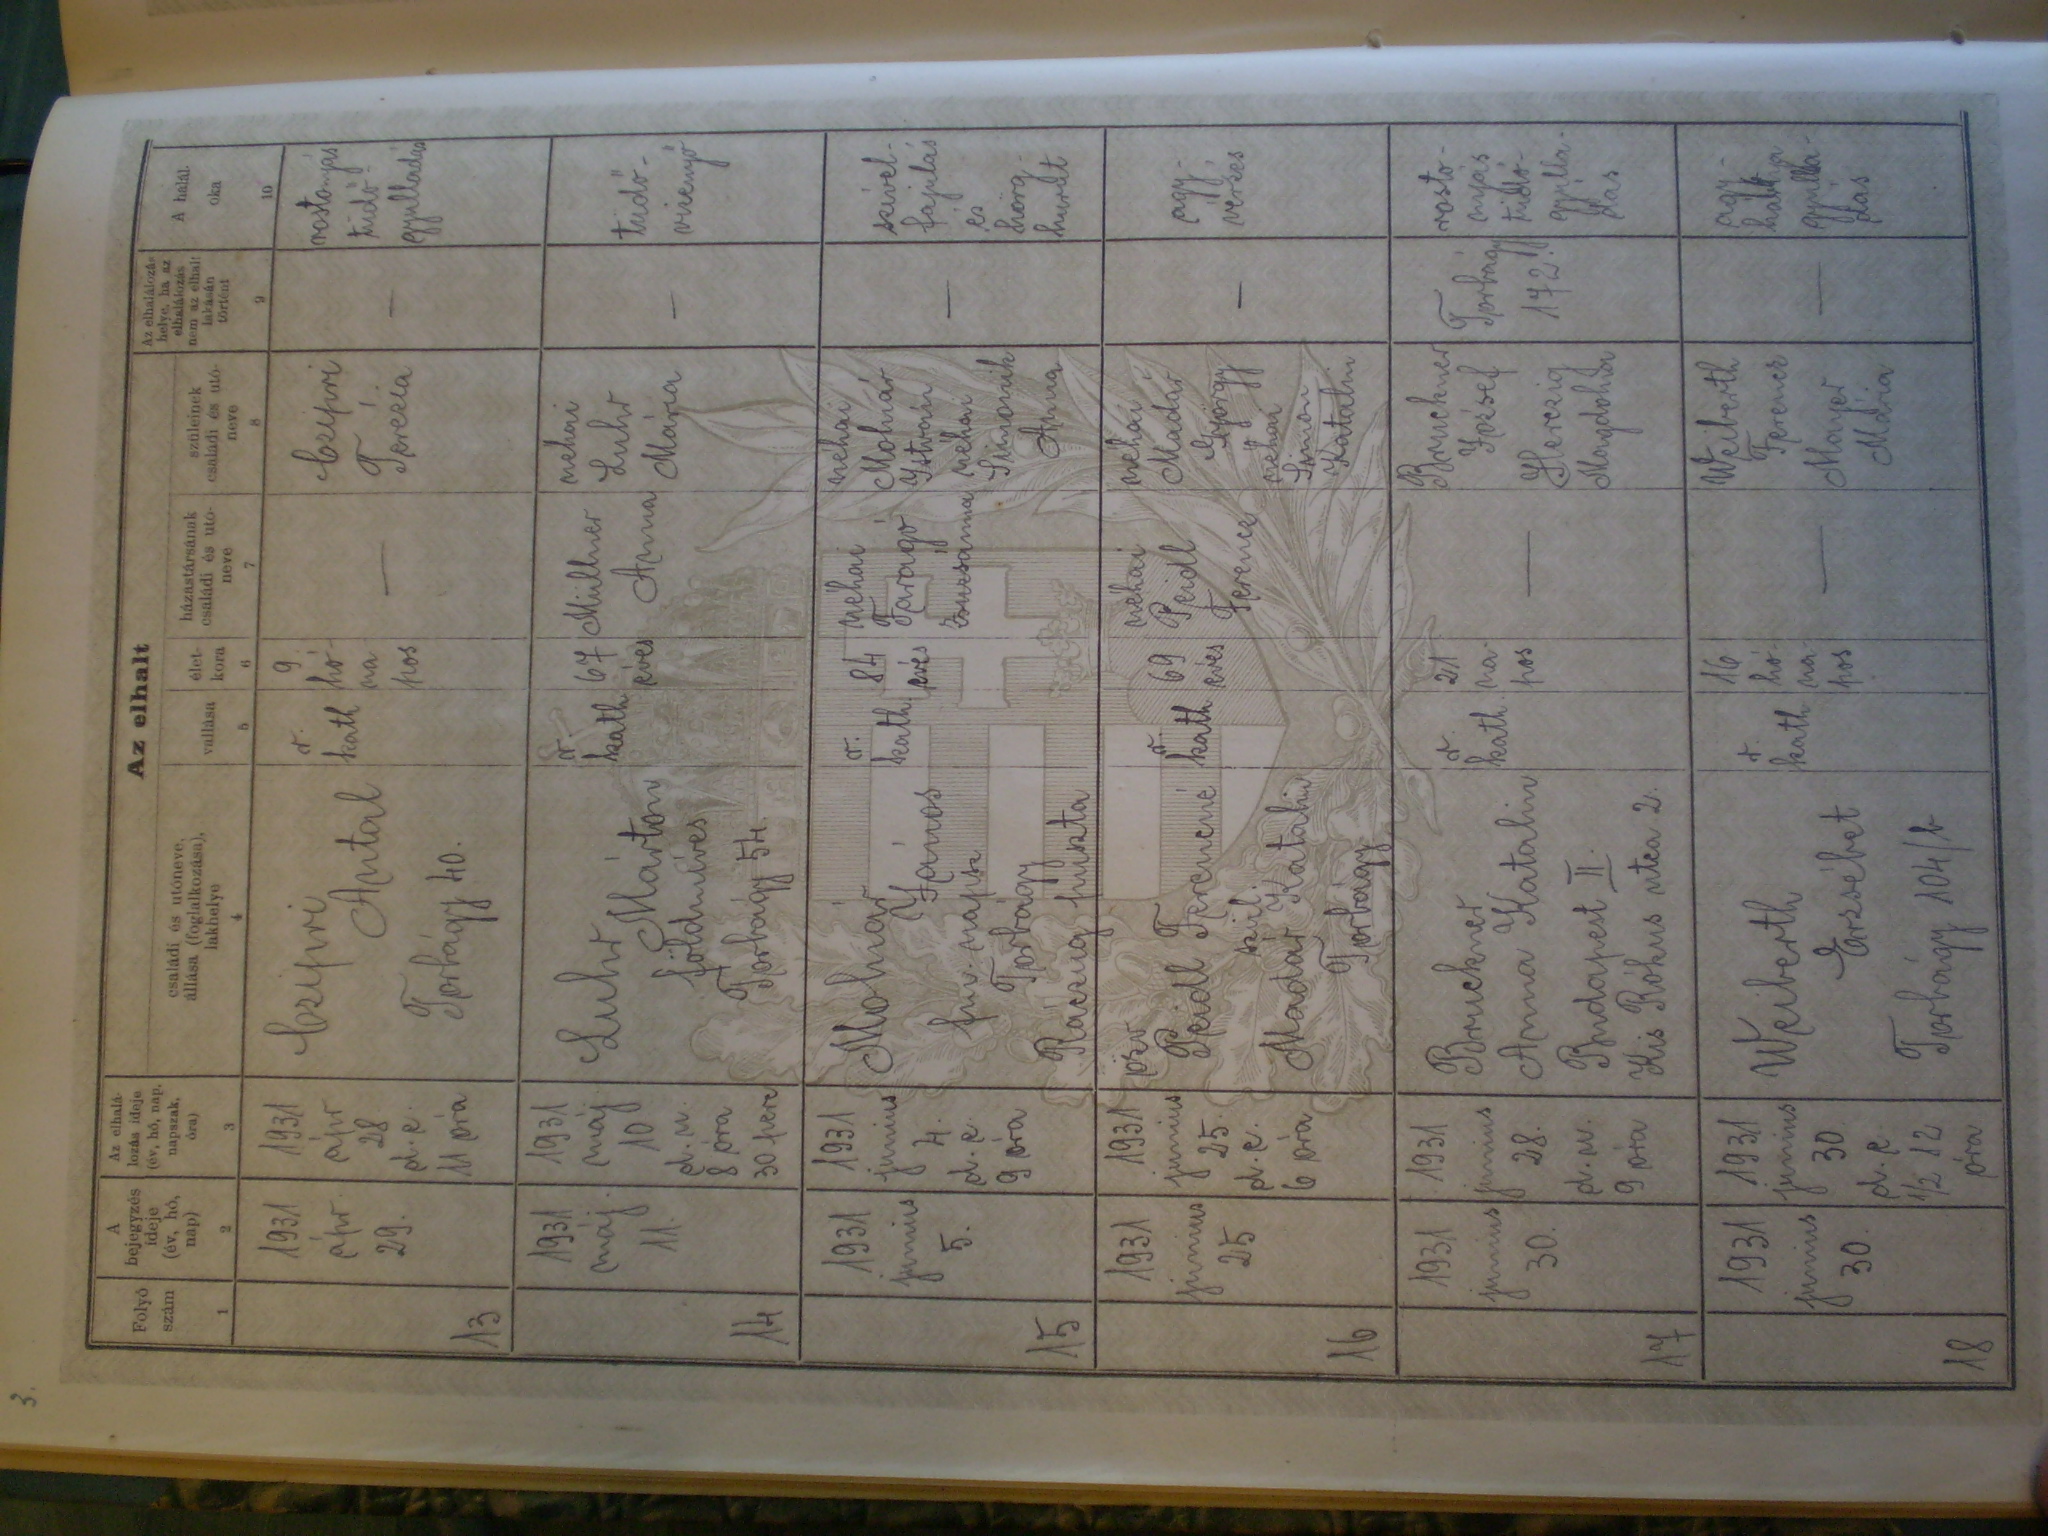 3.
Az elhalt
Folyó
szám
A
bejegyzés
ideje
(év, hó,
nap)
Az elhalá-
lozás ideje
(év, hó, nap,
napszak,
óra)
családi és utóneve,
állása (foglalkozása),
lakhelye
vallása
élet-
kora
házastársának
családi és utó-
neve
szüleinek
családi és utó-
neve
Az elhalálozás
helye, ha az
elhalálozás
nem az elhalt
lakásán
történt
A halál
oka
1
2
3
4
5
6
7
8
9
10
13
1931
ápr.
29.
1931
ápr
28
d. e.
11 óra
Czipri
Antal
Torbágy 40.
r.
kath
9
hó-
na
pos
—
Czipri
Terézia
—
rostonyás
tüdő-
gyulladás
14
1931
máj
11.
1931
máj
10
d. u.
8 óra
30 perc
Luhr
Márton
földmíves
Torbágy 54.
r.
kath
67
éves
Müllner
Anna
néhai
Luhr
Mária
—
tüdő-
vizenyő
15
1931
június
5.
1931
június
4.
d. e.
9 óra
Molnár
János
Torbágy
Ráczug puszta
r.
kath.
84
éves
néhai
Faragó
Zsuzsanna
néhai
Molnár
István
néhai
Simonik
Anna
—
szível-
fajulás
és
hörg-
hurut
16
1931
június
25
1931
június
25.
d. e.
6 óra
özv
Peidl Ferencné
szül
Madár Katalin
Torbágy
r.
kath
69
éves
néhai
Peidl
Ferencz
néhai
Madár
György
néhai
Simon
Katalin
—
agy-
vérzés
17
1931
június
30.
1931
június
28.
d. u.
9 óra
Bruckner
Anna Katalin
Budapest II.
Kis Rókus utca 2.
r.
kath.
21
na-
pos
—
Bruckner
József
Herczig
Magdolna
Torbágy
172.
rosto-
nyás
tüdő-
gyulla-
dás
18
1931
június
30.
1931
június
30.
d. e.
1/2 12
óra
Weiberth
Erzsébet
Torbágy 104/b
r.
kath.
16
hó-
na-
pos
—
Weiberth
Ferencz
Mayer
Mária
—
agy-
hártya
gyulla-
dás